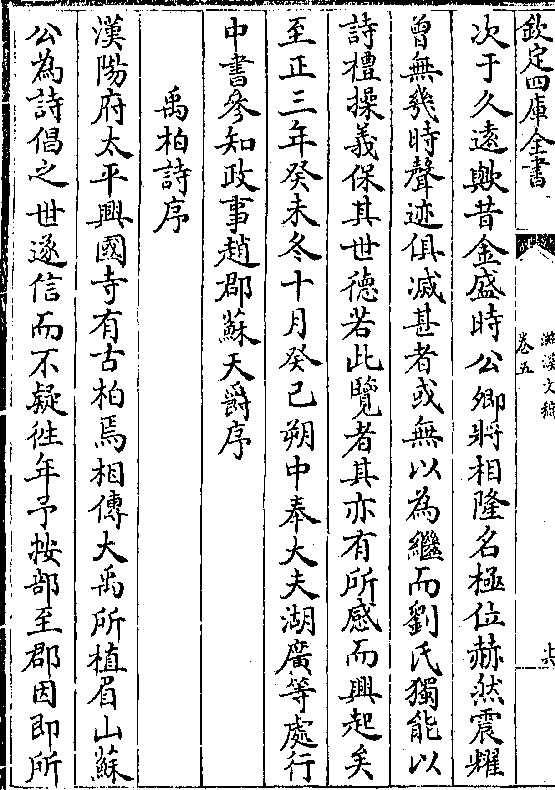 欽定四庫全書
滋溪文稿
卷五
次于久遠歟昔金盛時公卿將相隆名極位赫然震耀
曾無幾時聲迹俱滅甚者或無以為繼而劉氏獨能以
詩禮操義保其世德若此覽者其亦有所感而興起矣
至正三年癸未冬十月癸己朔中奉大夫湖廣等處行
中書參知政事趙郡蘇天爵序
禹柏詩序
漢陽府太平興國寺有古柏焉相傳大禹所植眉山蘇
公為詩倡之世遂信而不疑徃年予按部至郡因即所